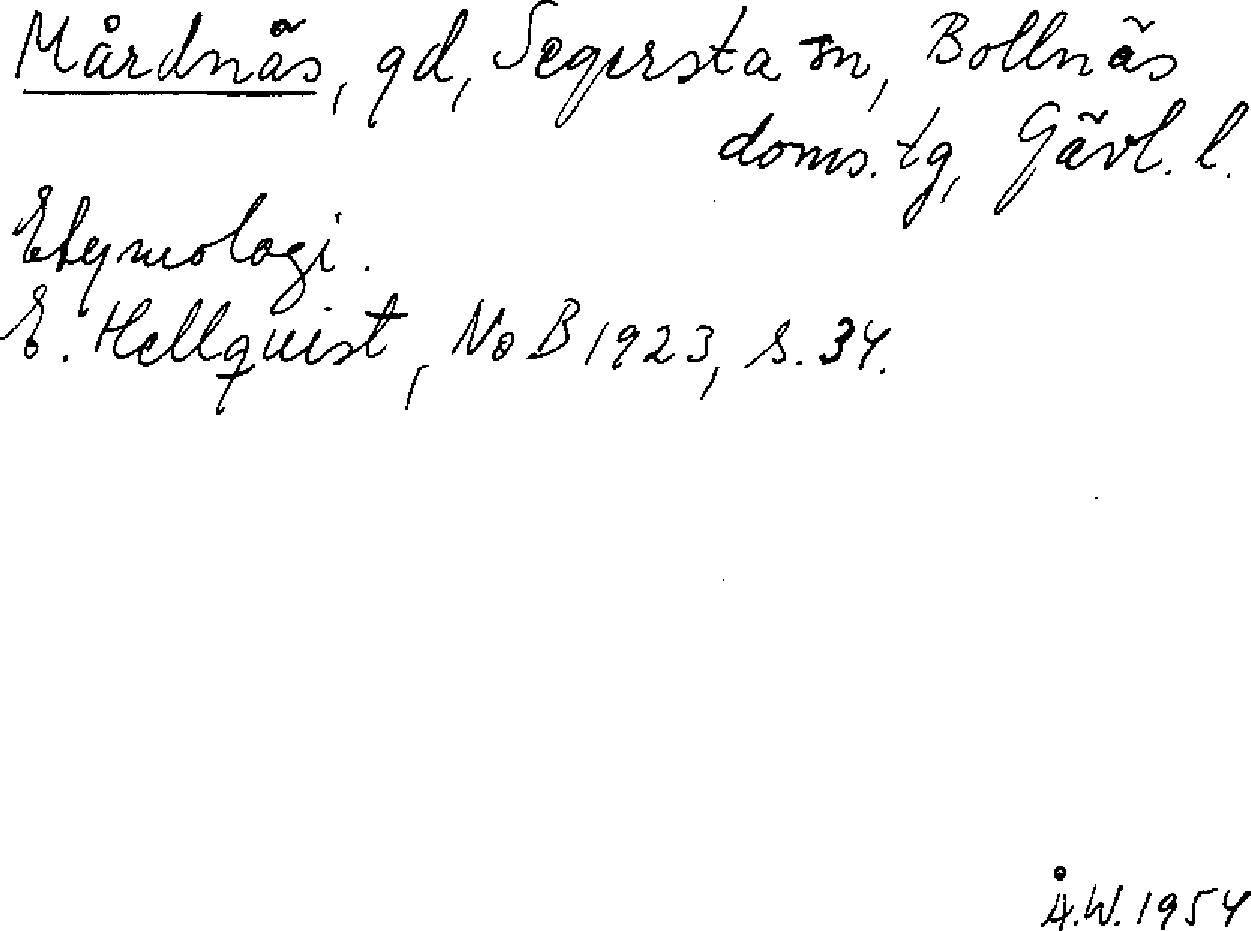 Mårdnäs, gd, Segersta sn, Bollnäs
doms. tg, Gävl. l.
Etymologi.
E. Hellquist, NoB 1923, s. 34.
Å.W. 1954